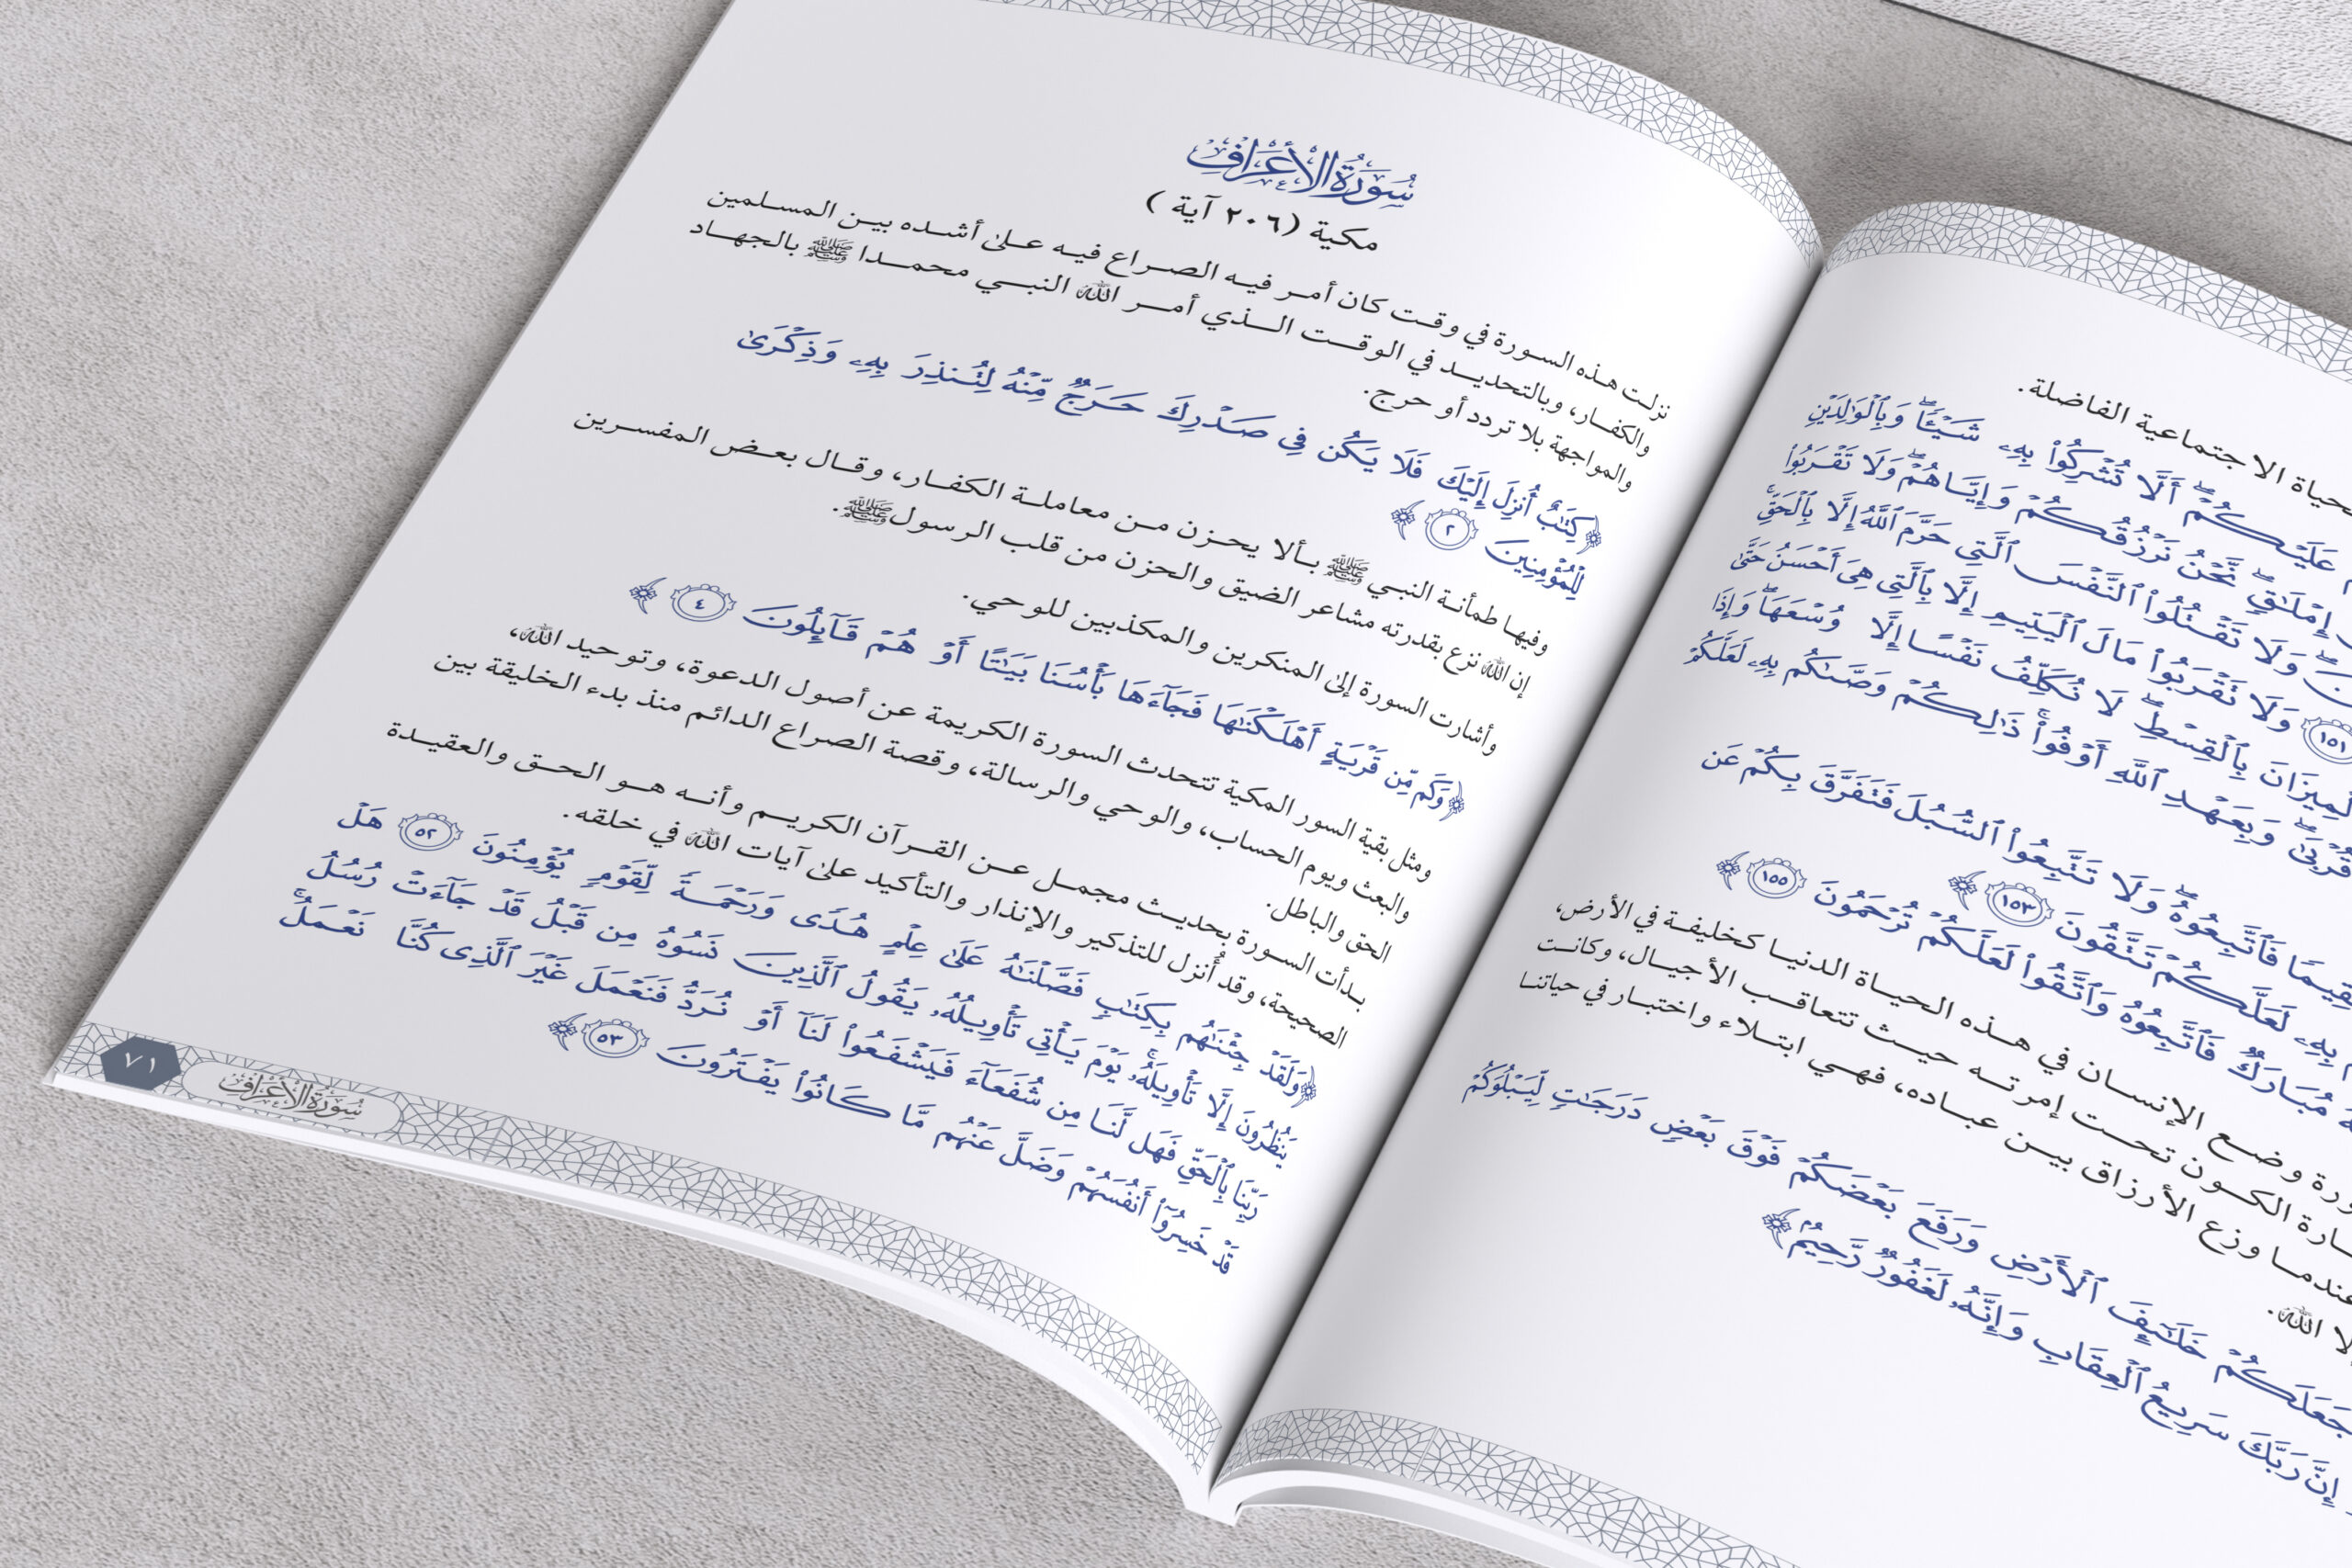 حياة الاجتماعية الفاضلة.
عَلَيْكُمْ ۖ أَلَّا تُشْرِكُوا۟ بِهِۦ شَيْـًٔا ۖ وَبِٱلْوَٰلِدَيْنِ
إِمْلَـٰقٍ ۖ نَّحْنُ نَرْزُقُكُمْ وَإِيَّاهُمْ ۖ وَلَا تَقْرَبُوا۟
وَلَا تَقْتُلُوا۟ ٱلنَّفْسَ ٱلَّتِى حَرَّمَ ٱللَّهُ إِلَّا بِٱلْحَقِّ ۚ
﴿١٥١﴾ وَلَا تَقْرَبُوا۟ مَالَ ٱلْيَتِيمِ إِلَّا بِٱلَّتِى هِىَ أَحْسَنُ حَتَّىٰ
ٱلْمِيزَانَ بِٱلْقِسْطِ ۖ لَا نُكَلِّفُ نَفْسًا إِلَّا وُسْعَهَا ۖ وَإِذَا
قُرْبَىٰ ۖ وَبِعَهْدِ ٱللَّهِ أَوْفُوا۟ ۚ ذَٰلِكُمْ وَصَّىٰكُم بِهِۦ لَعَلَّكُمْ
فَٱتَّبِعُوهُ ۖ وَلَا تَتَّبِعُوا۟ ٱلسُّبُلَ فَتَفَرَّقَ بِكُمْ عَن
بِهِۦ لَعَلَّكُمْ تَتَّقُونَ ﴿١٥٣﴾
مُبَارَكٌ فَٱتَّبِعُوهُ وَٱتَّقُوا۟ لَعَلَّكُمْ تُرْحَمُونَ ﴿١٥٥﴾
وضع الإنسان في هذه الحياة الدنيا كخليفة في الأرض،
الكون تحت إمرته حيث تتعاقب الأجيال، وكانت
عندما وزع الأرزاق بين عباده، فهي ابتلاء واختبار في حياتنا
الله.
جَعَلَكُمْ خَلَـٰٓئِفَ ٱلْأَرْضِ وَرَفَعَ بَعْضَكُمْ فَوْقَ بَعْضٍ دَرَجَـٰتٍ لِّيَبْلُوَكُمْ
إِنَّ رَبَّكَ سَرِيعُ ٱلْعِقَابِ وَإِنَّهُۥ لَغَفُورٌ رَّحِيمٌ ﴾
سُورَةُ الأَعْرَافِ
مكية (٢٠٦ آية )
نزلت هذه السورة في وقت كان أمر فيه الصراع فيه على أشده بين المسلمين
والكفار، وبالتحديد في الوقت الذي أمر الله النبي محمدا ﷺ بالجهاد
والمواجهة بلا تردد أو حرج.
﴿كِتَـٰبٌ أُنزِلَ إِلَيْكَ فَلَا يَكُن فِى صَدْرِكَ حَرَجٌ مِّنْهُ لِتُنذِرَ بِهِۦ وَذِكْرَىٰ
لِلْمُؤْمِنِينَ ٢﴾
وفيها طمأنة النبي ﷺ بألا يحزن من معاملة الكفار، وقال بعض المفسرين
إن الله نزع بقدرته مشاعر الضيق والحزن من قلب الرسول ﷺ.
وأشارت السورة إلى المنكرين والمكذبين للوحي.
﴿وَكَم مِّن قَرْيَةٍ أَهْلَكْنَـٰهَا فَجَآءَهَا بَأْسُنَا بَيَـٰتًا أَوْ هُمْ قَآئِلُونَ ٤﴾
ومثل بقية السور المكية تتحدث السورة الكريمة عن أصول الدعوة، وتوحيد الله،
والبعث ويوم الحساب، والوحي والرسالة، وقصة الصراع الدائم منذ بدء الخليقة بين
الحق والباطل.
بدأت السورة بحديث مجمل عن القرآن الكريم وأنه هو الحق والعقيدة
الصحيحة، وقد أُنزل للتذكير والإنذار والتأكيد على آيات الله في خلقه.
﴿وَلَقَدْ جِئْنَـٰهُم بِكِتَـٰبٍ فَصَّلْنَـٰهُ عَلَىٰ عِلْمٍ هُدًى وَرَحْمَةً لِّقَوْمٍ يُؤْمِنُونَ ٥٢ هَلْ
يَنظُرُونَ إِلَّا تَأْوِيلَهُۥ ۚ يَوْمَ يَأْتِى تَأْوِيلُهُۥ يَقُولُ ٱلَّذِينَ نَسُوهُ مِن قَبْلُ قَدْ جَآءَتْ رُسُلُ
رَبِّنَا بِٱلْحَقِّ فَهَل لَّنَا مِن شُفَعَآءَ فَيَشْفَعُوا۟ لَنَآ أَوْ نُرَدُّ فَنَعْمَلَ غَيْرَ ٱلَّذِى كُنَّا نَعْمَلُ ۚ
قَدْ خَسِرُوٓا۟ أَنفُسَهُمْ وَضَلَّ عَنْهُم مَّا كَانُوا۟ يَفْتَرُونَ ٥٣﴾
سُورَةُ الأَعْرَافِ
٧١